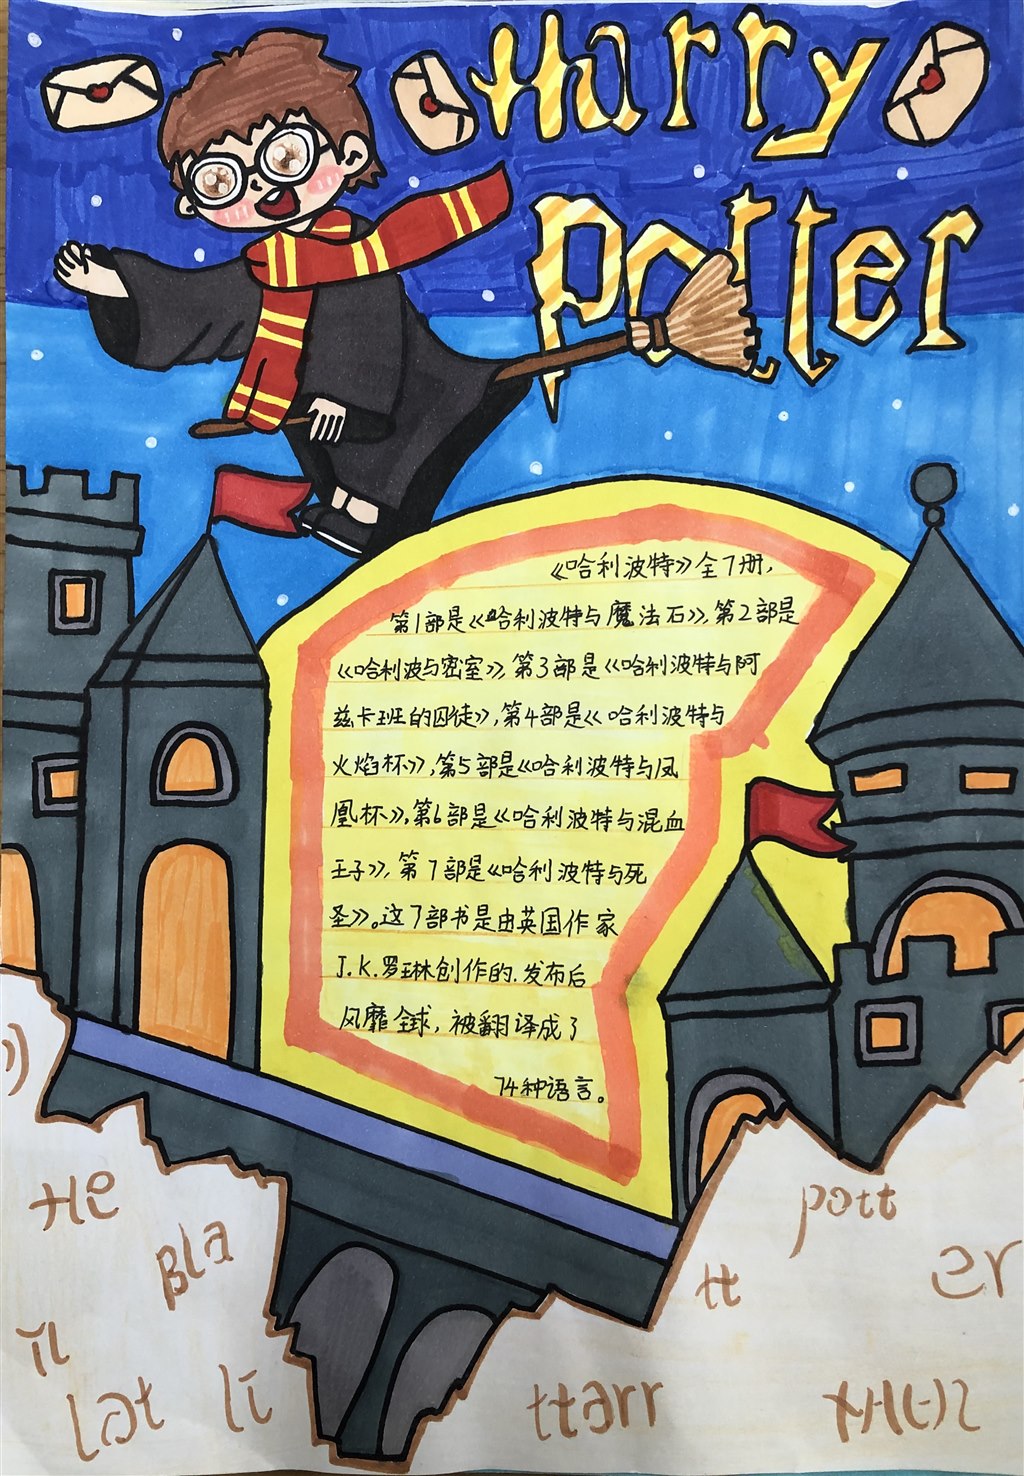 Harry
Potter
《哈利波特》全7册,
第1部是《哈利波特与魔法石》,第2部是
《哈利波与密室》,第3部是《哈利波特与阿
兹卡班的囚徒》,第4部是《哈利波特与
火焰杯》,第5部是《哈利波特与凤
凰杯》,第6部是《哈利波特与混血
王子》,第7部是《哈利波特与死
圣》。这7部书是由英国作家
J.K.罗琳创作的.发布后
风靡全球,被翻译成了
74种语言。
He
Bla
pott
er
tt
il
Lat
li
ttarr